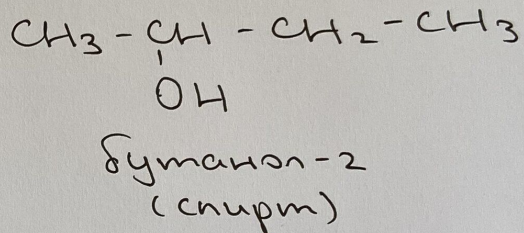 CH₃ - CH - CH₂ - CH₃
OH
бутанол-2
(спирт)